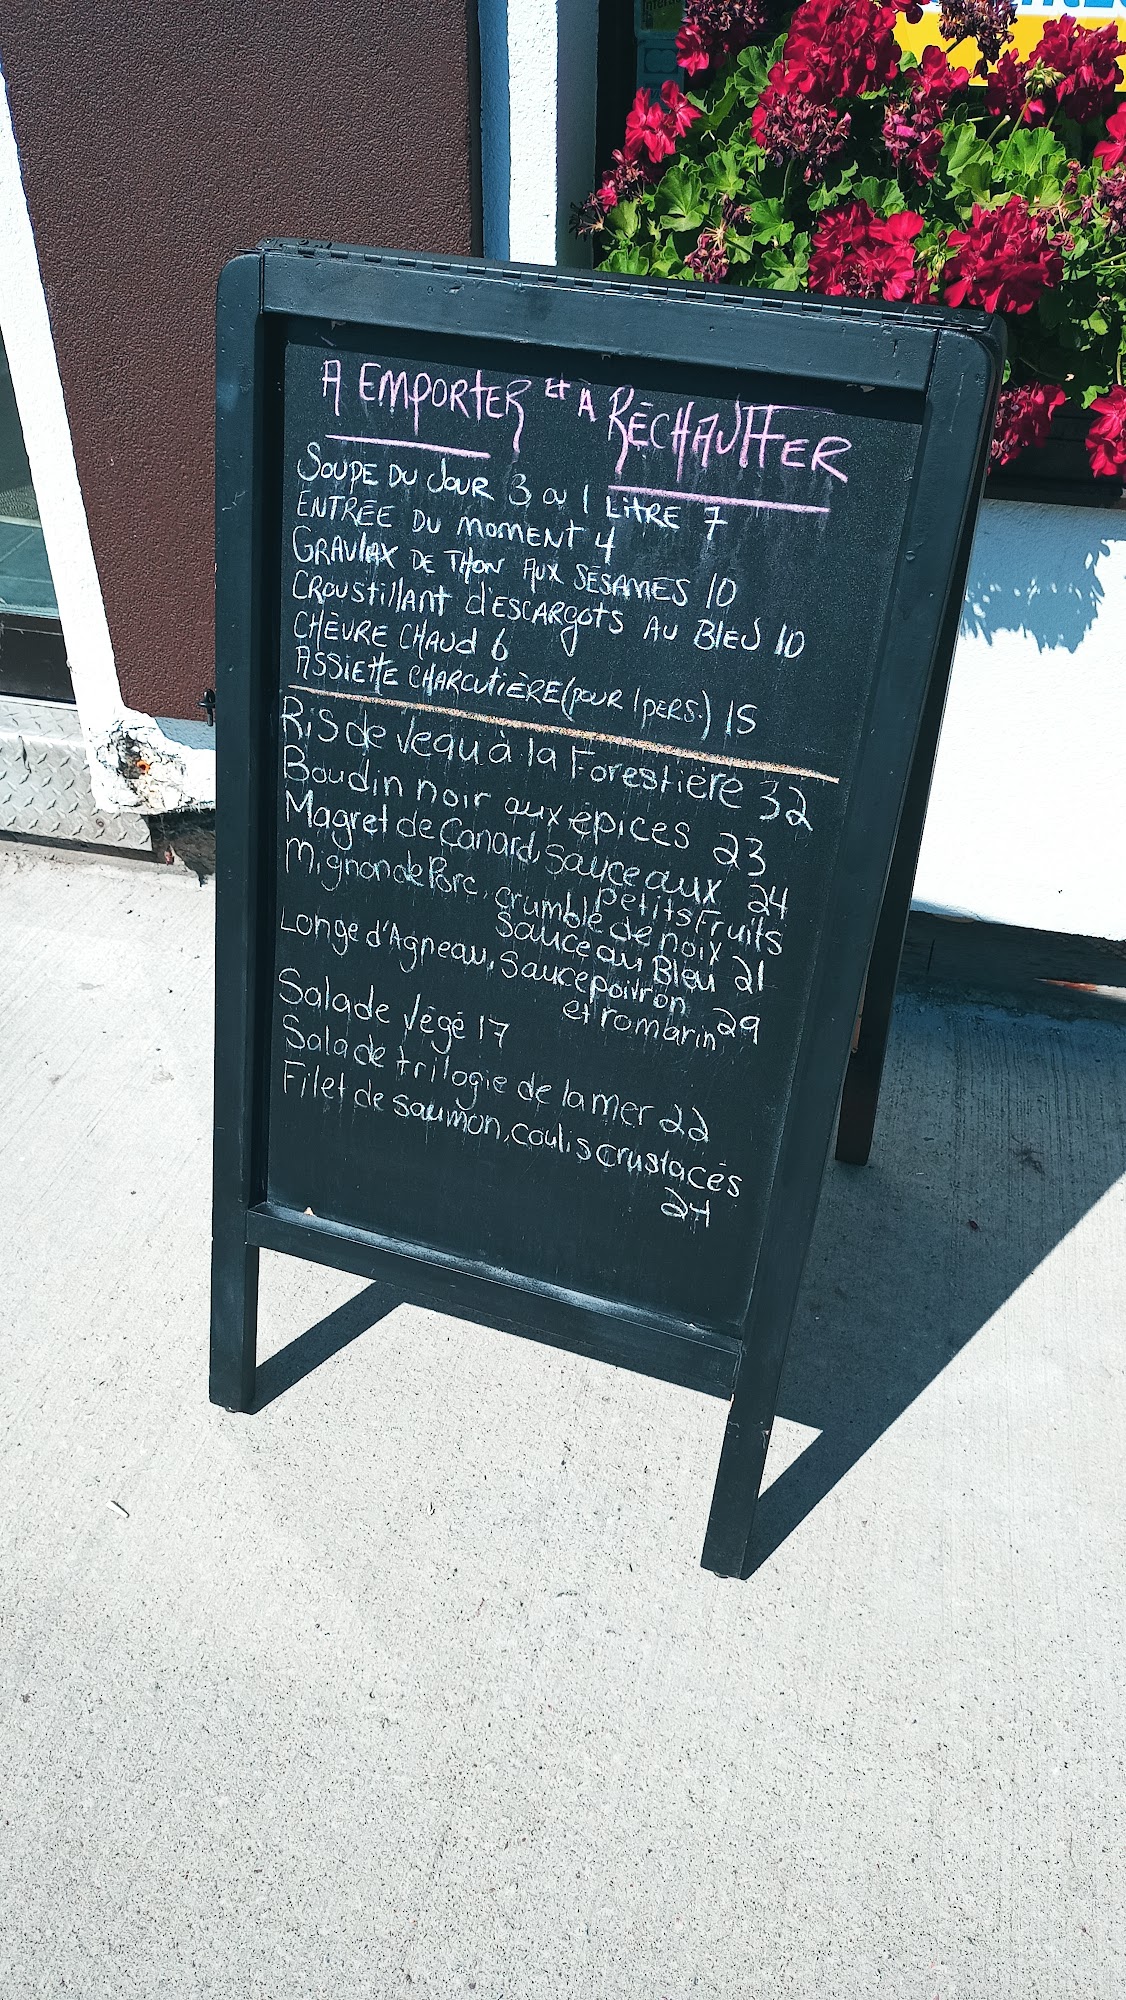 A EMPORTER ET À RÉCHAUFFER
SOUPE DU JOUR 3 OU 1 LITRE 7
ENTRÉE DU MOMENT 4
GRAVLAX DE THON AUX SÉSAMES 10
CROUSTILLANT D'ESCARGOTS AU BLEU 10
CHÈVRE CHAUD 6
ASSIETTE CHARCUTIÈRE (POUR 1 PERS.) 15
Ris de veau à la Forestière 32
Boudin noir aux épices 23
Magret de Canard, sauce aux 24
Petits Fruits
Mignon de Porc, crumble de noix
sauce au Bleu 21
Longe d'Agneau, sauce poivron
et romarin 29
Salade végé 17
Salade trilogie de la mer 22
Filet de saumon, coulis crustacés
24